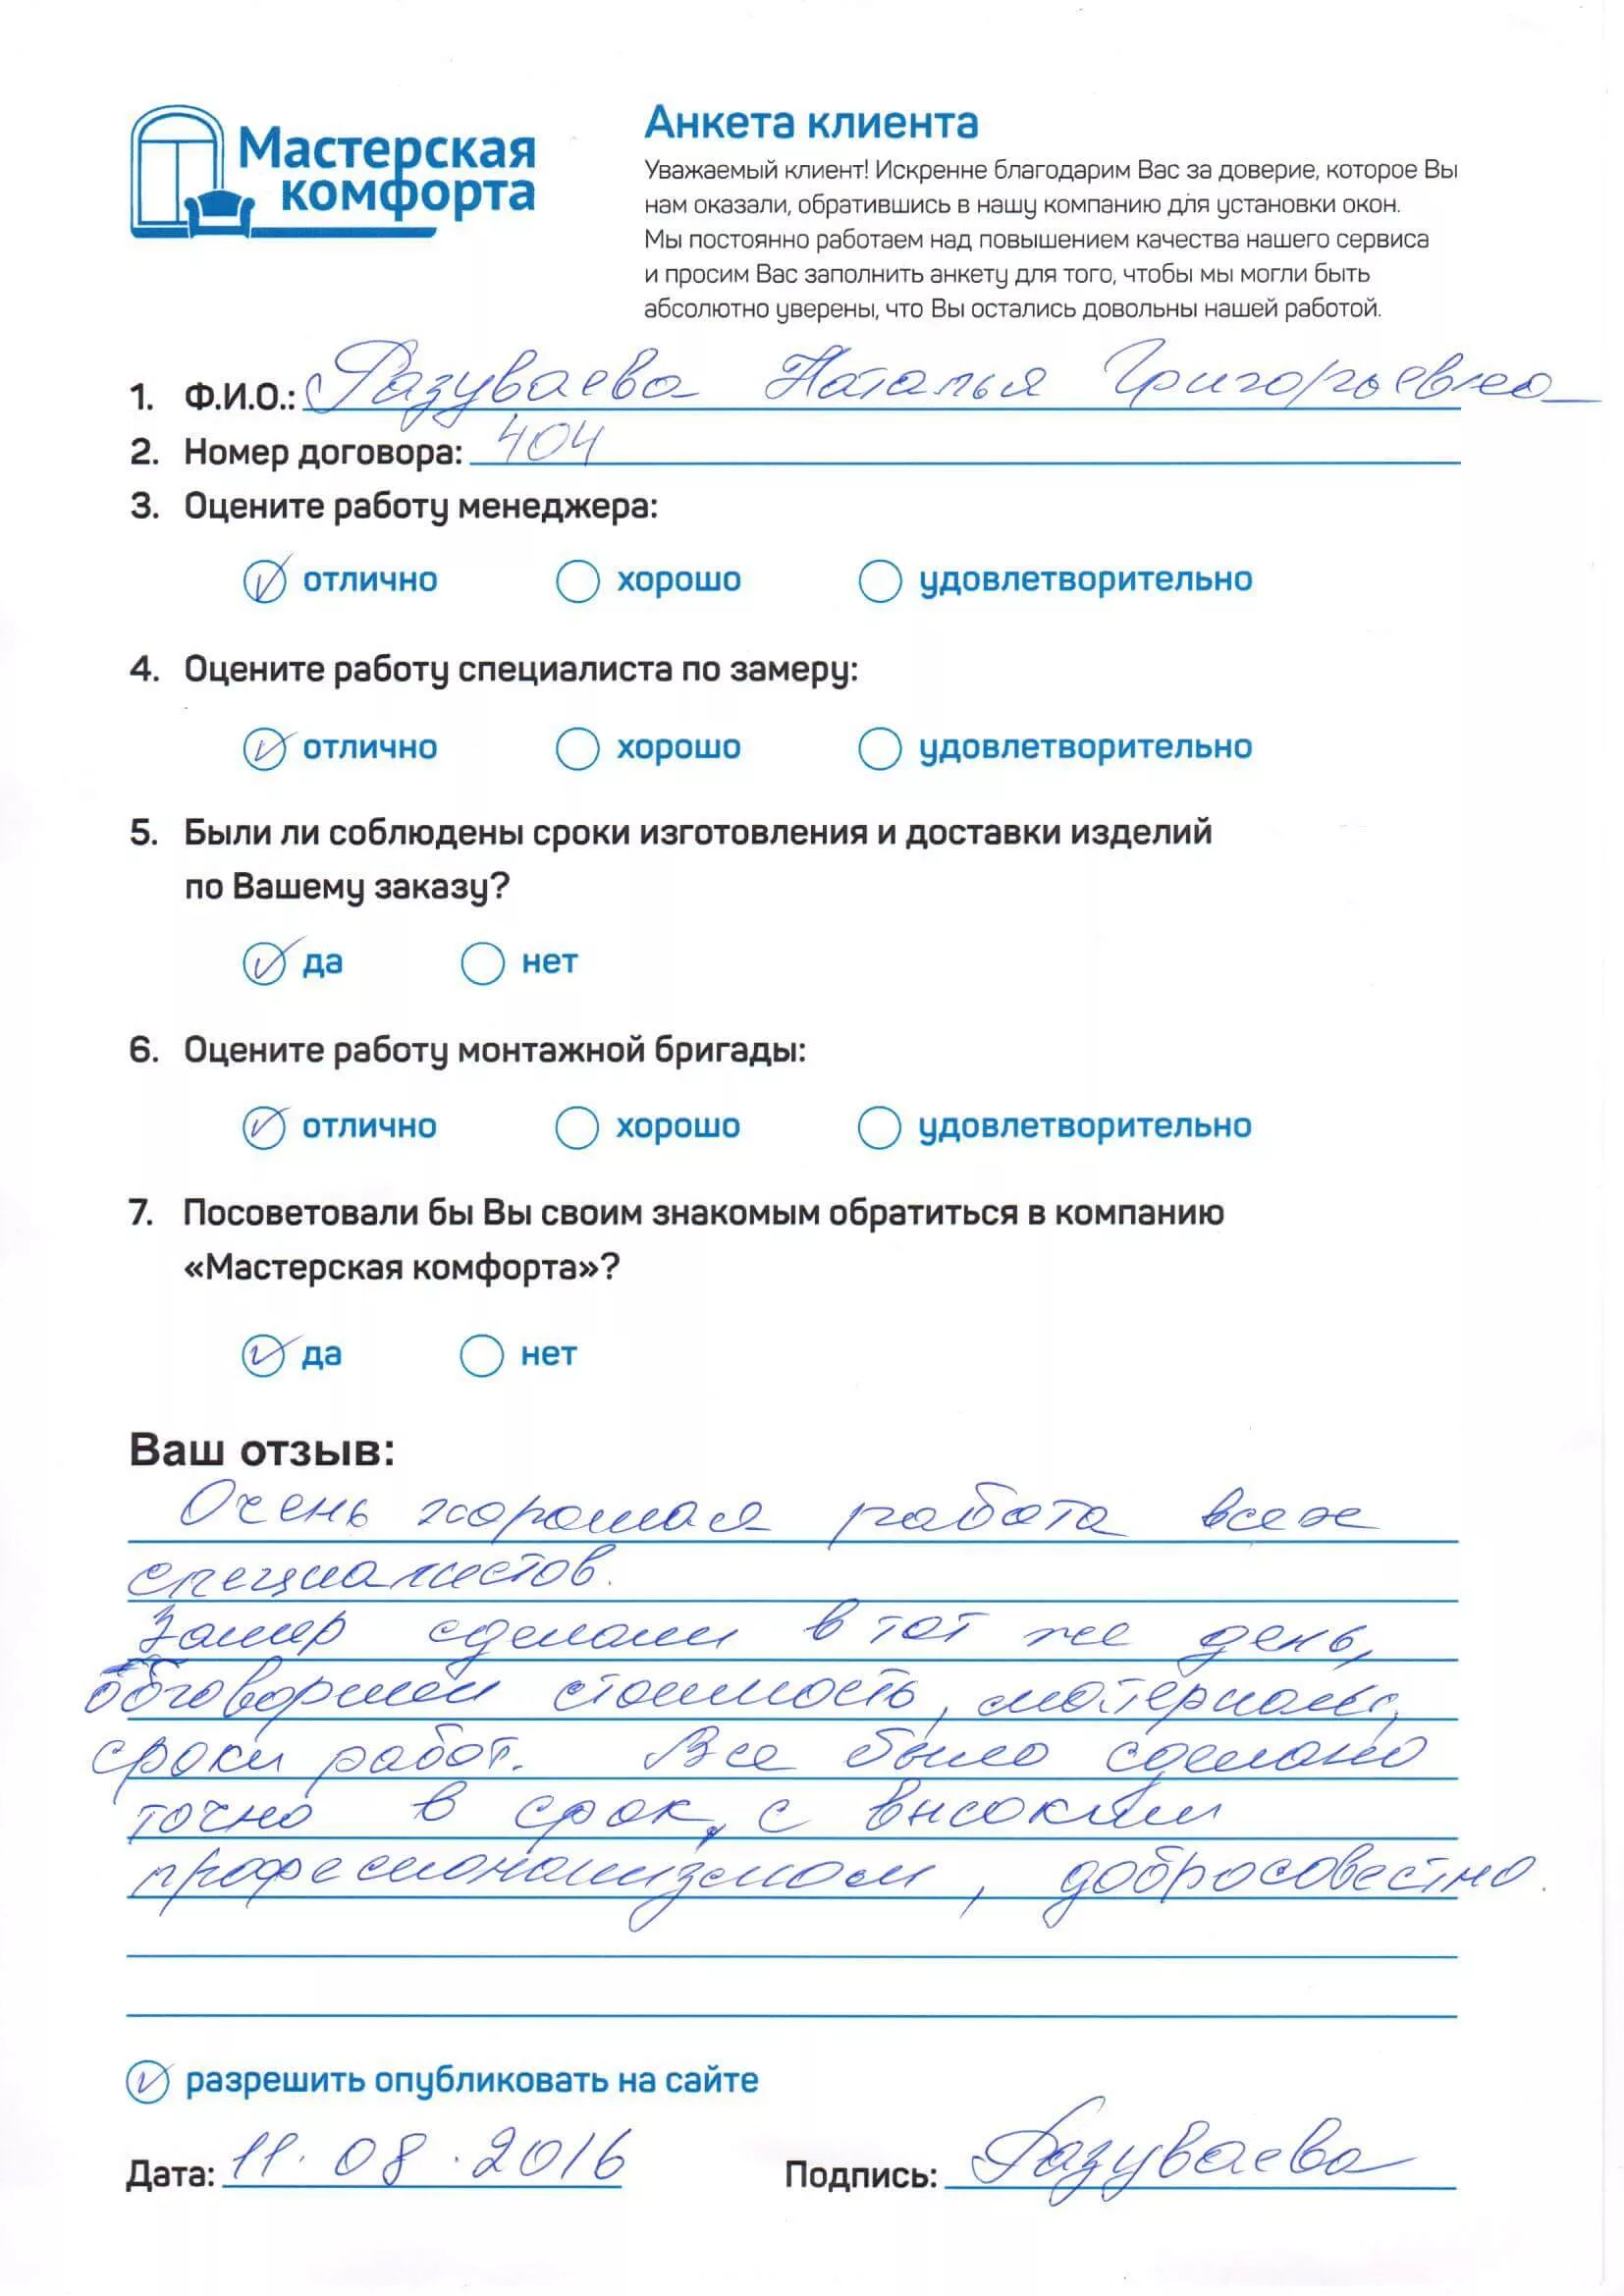 Мастерская
комфорта
Анкета клиента
Уважаемый клиент! Искренне благодарим Вас за доверие, которое Вы
нам оказали, обратившись в нашу компанию для установки окон.
Мы постоянно работаем над повышением качества нашего сервиса
и просим Вас заполнить анкету для того, чтобы мы могли быть
абсолютно уверены, что Вы остались довольны нашей работой.
1. Ф.И.О.: Разуваева Наталья Григорьевна
2. Номер договора: 404
3. Оцените работу менеджера:
отлично хорошо удовлетворительно
4. Оцените работу специалиста по замеру:
отлично хорошо удовлетворительно
5. Были ли соблюдены сроки изготовления и доставки изделий
по Вашему заказу?
да нет
6. Оцените работу монтажной бригады:
отлично хорошо удовлетворительно
7. Посоветовали бы Вы своим знакомым обратиться в компанию
«Мастерская комфорта»?
да нет
Ваш отзыв:
Очень хорошая работа всех
специалистов.
Замер сделали в тот же день,
обговорили стоимость, материалы,
сроки работ. Все было сделано
точно в срок, с высоким
професионализмом, добросовестно.
разрешить опубликовать на сайте
Дата: 11.08.2016 Подпись: Разуваева